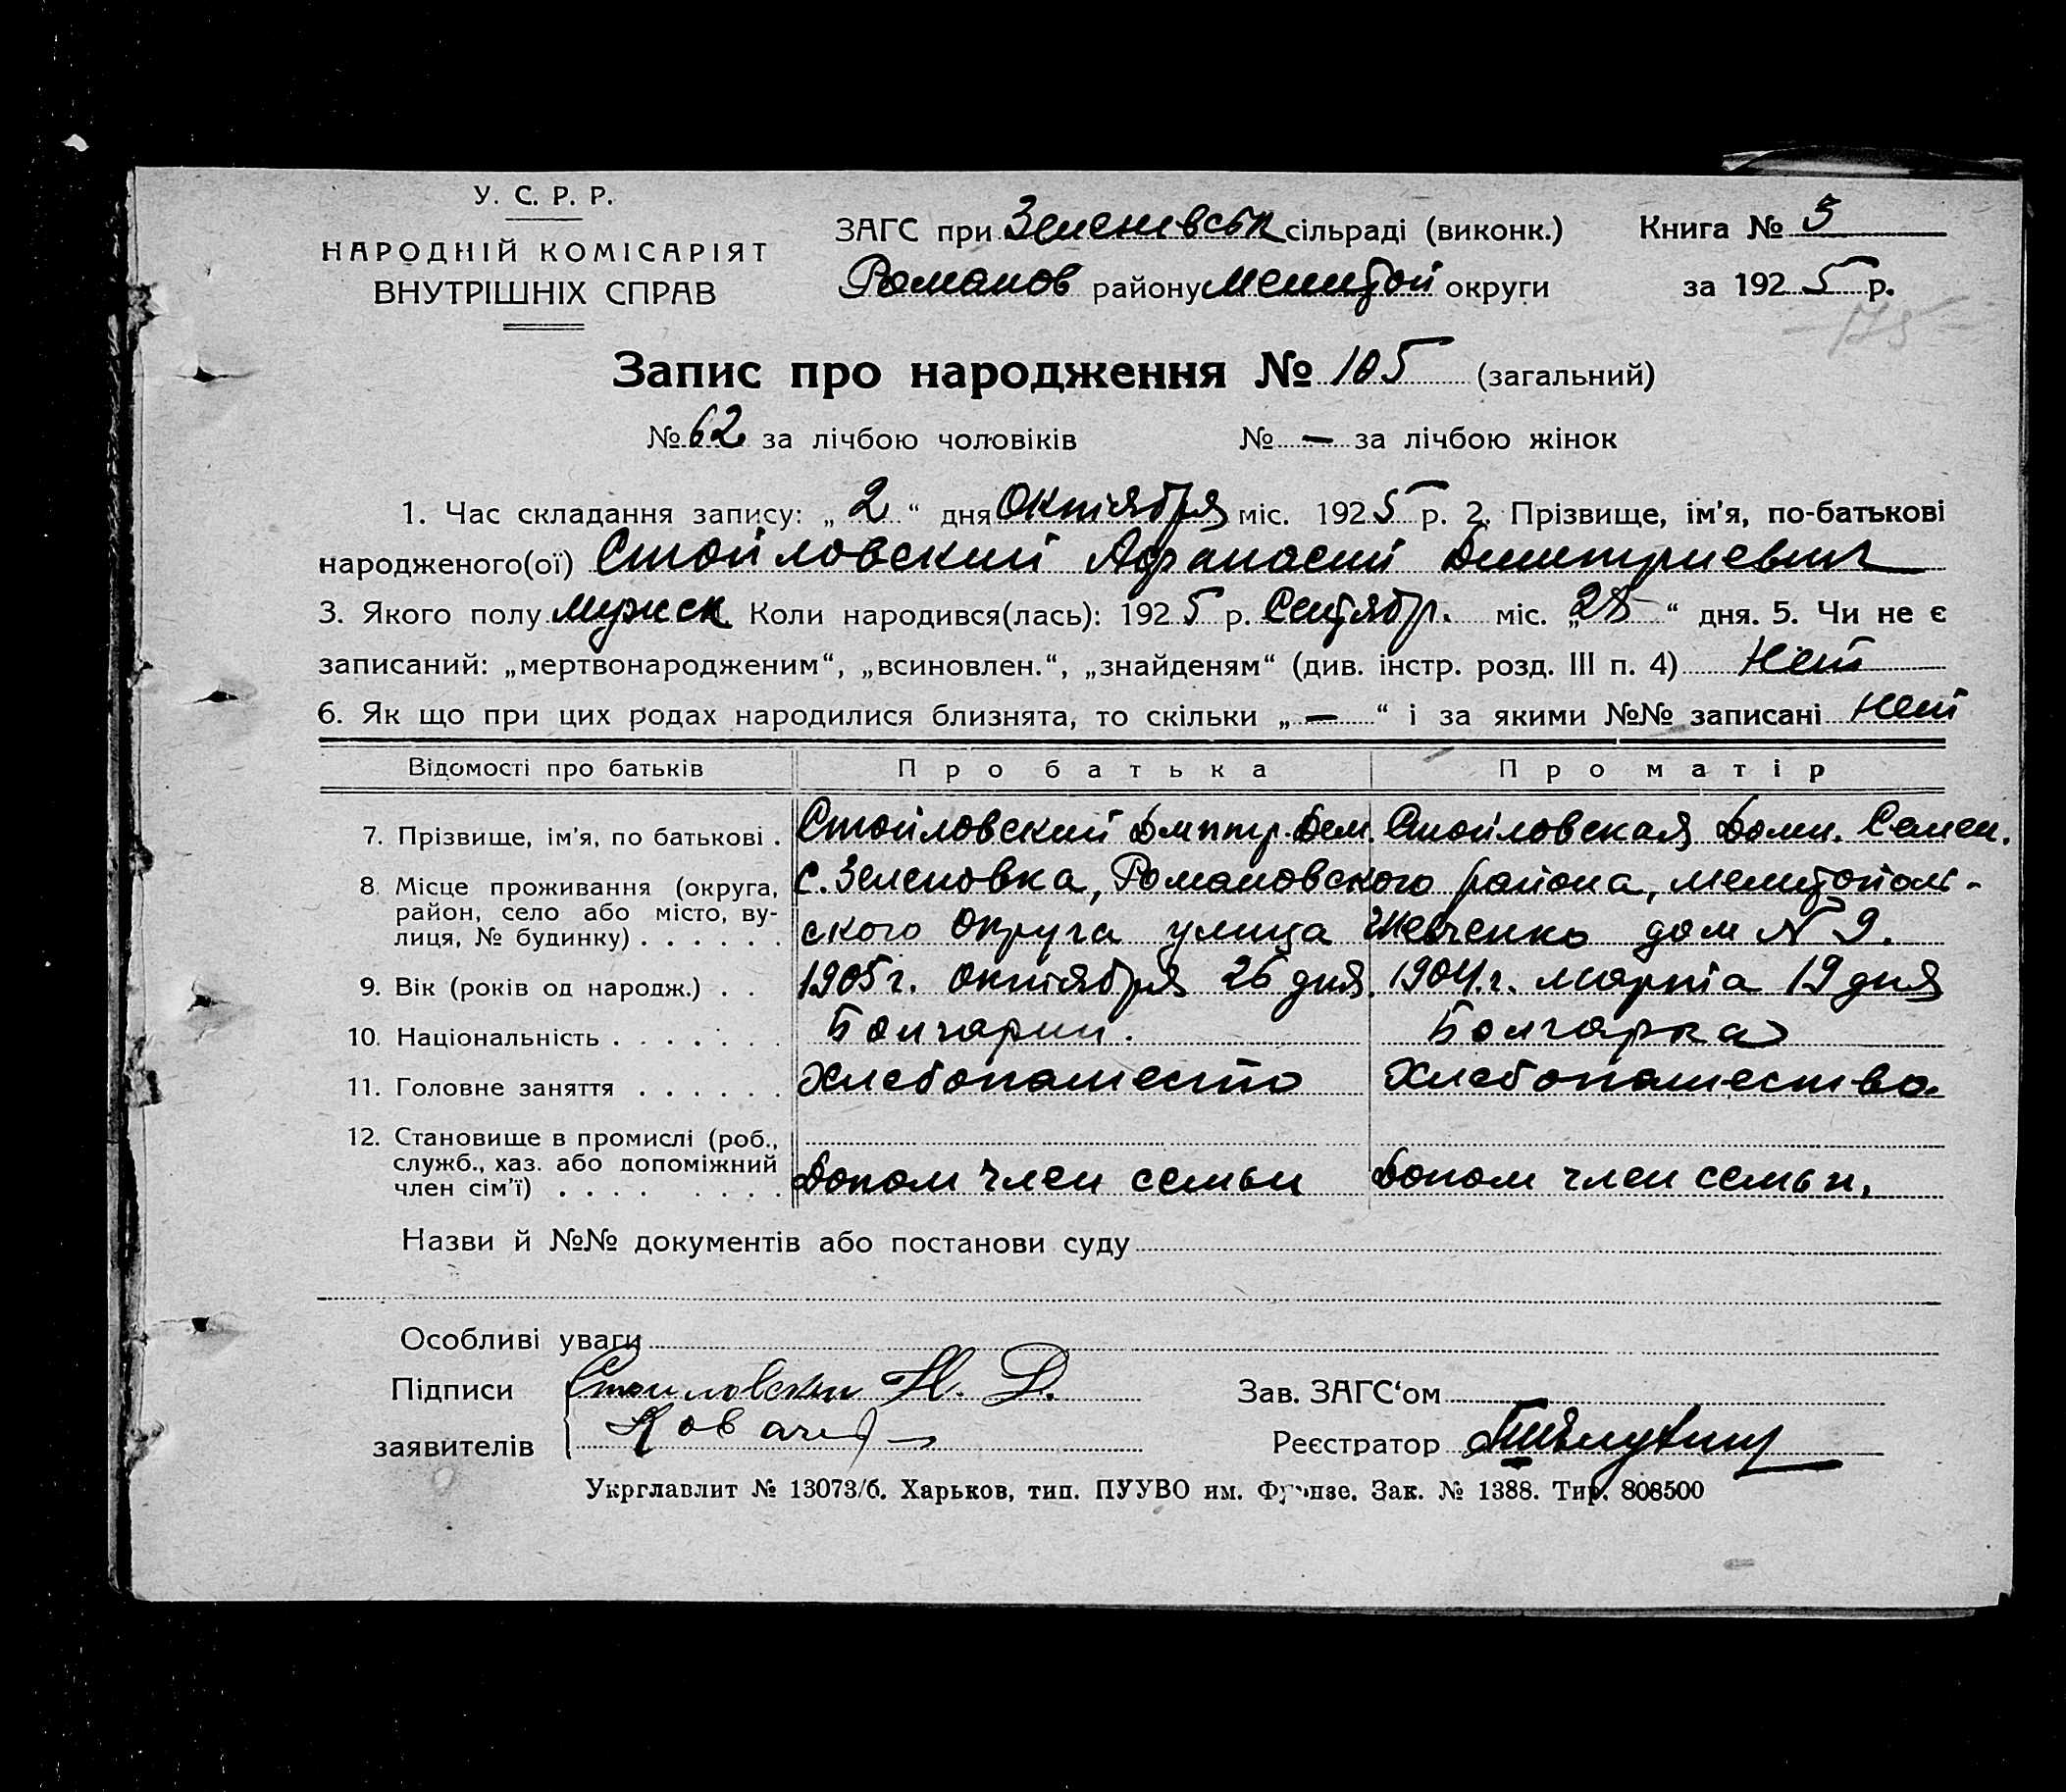 У. С. Р. Р.
НАРОДНІЙ КОМІСАРІЯТ
ВНУТРІШНІХ СПРАВ
ЗАГС при Зеленивськ сільраді (виконк.)
Романов району Мелитой округи
Книга № 5
за 1925 р.
175
Запис про народження № 105 (загальний)
№ 62 за лічбою чоловіків № — за лічбою жінок
1. Час складання запису: „2“ дня Октября міс. 1925 р. 2. Прізвище, ім’я, по-батькові
народженого(ої) Стойловский Афанасий Димитриевич
3. Якого полу мужск Коли народився(лась): 1925 р. Сентябр. міс. „28“ дня. 5. Чи не є
записаний: „мертвонародженим“, „всиновлен.“, „знайденям“ (див. інстр. розд. III п. 4) Нет
6. Як що при цих родах народилися близнята, то скільки „—“ і за якими №№ записані нет
Відомості про батьків Про батька Про матір
7. Прізвище, ім’я, по батькові . Стойловский Дмитр. Дем. Стойловская Домн. Семен.
8. Місце проживання (округа, район, село або місто, вулиця, № будинку) . . . . . . с. Зеленовка, Романовского района, Мелитополь-
ского Округа улица Шевченко дом № 9.
9. Вік (років од народж.) . . 1905 г. Октября 26 дня. 1904 г. марта 19 дня
10. Національність . . . . . . . Болгарин. Болгарка
11. Головне заняття . . . . . . Хлебопашество Хлебопашество.
12. Становище в промислі (роб., служб., хаз. або допоміжний член сім’ї) . . . . . . . . Допом член семьи Допом член семьи.
Назви й №№ документів або постанови суду
Особливі уваги
Підписи Стоиловски Н. Д.
заявителів Ковач
Зав. ЗАГС‘ом
Реєстратор
Укрглавлит № 13073/б. Харьков, тип. ПУУВО им. Фрунзе. Зак. № 1388. Тир. 808500